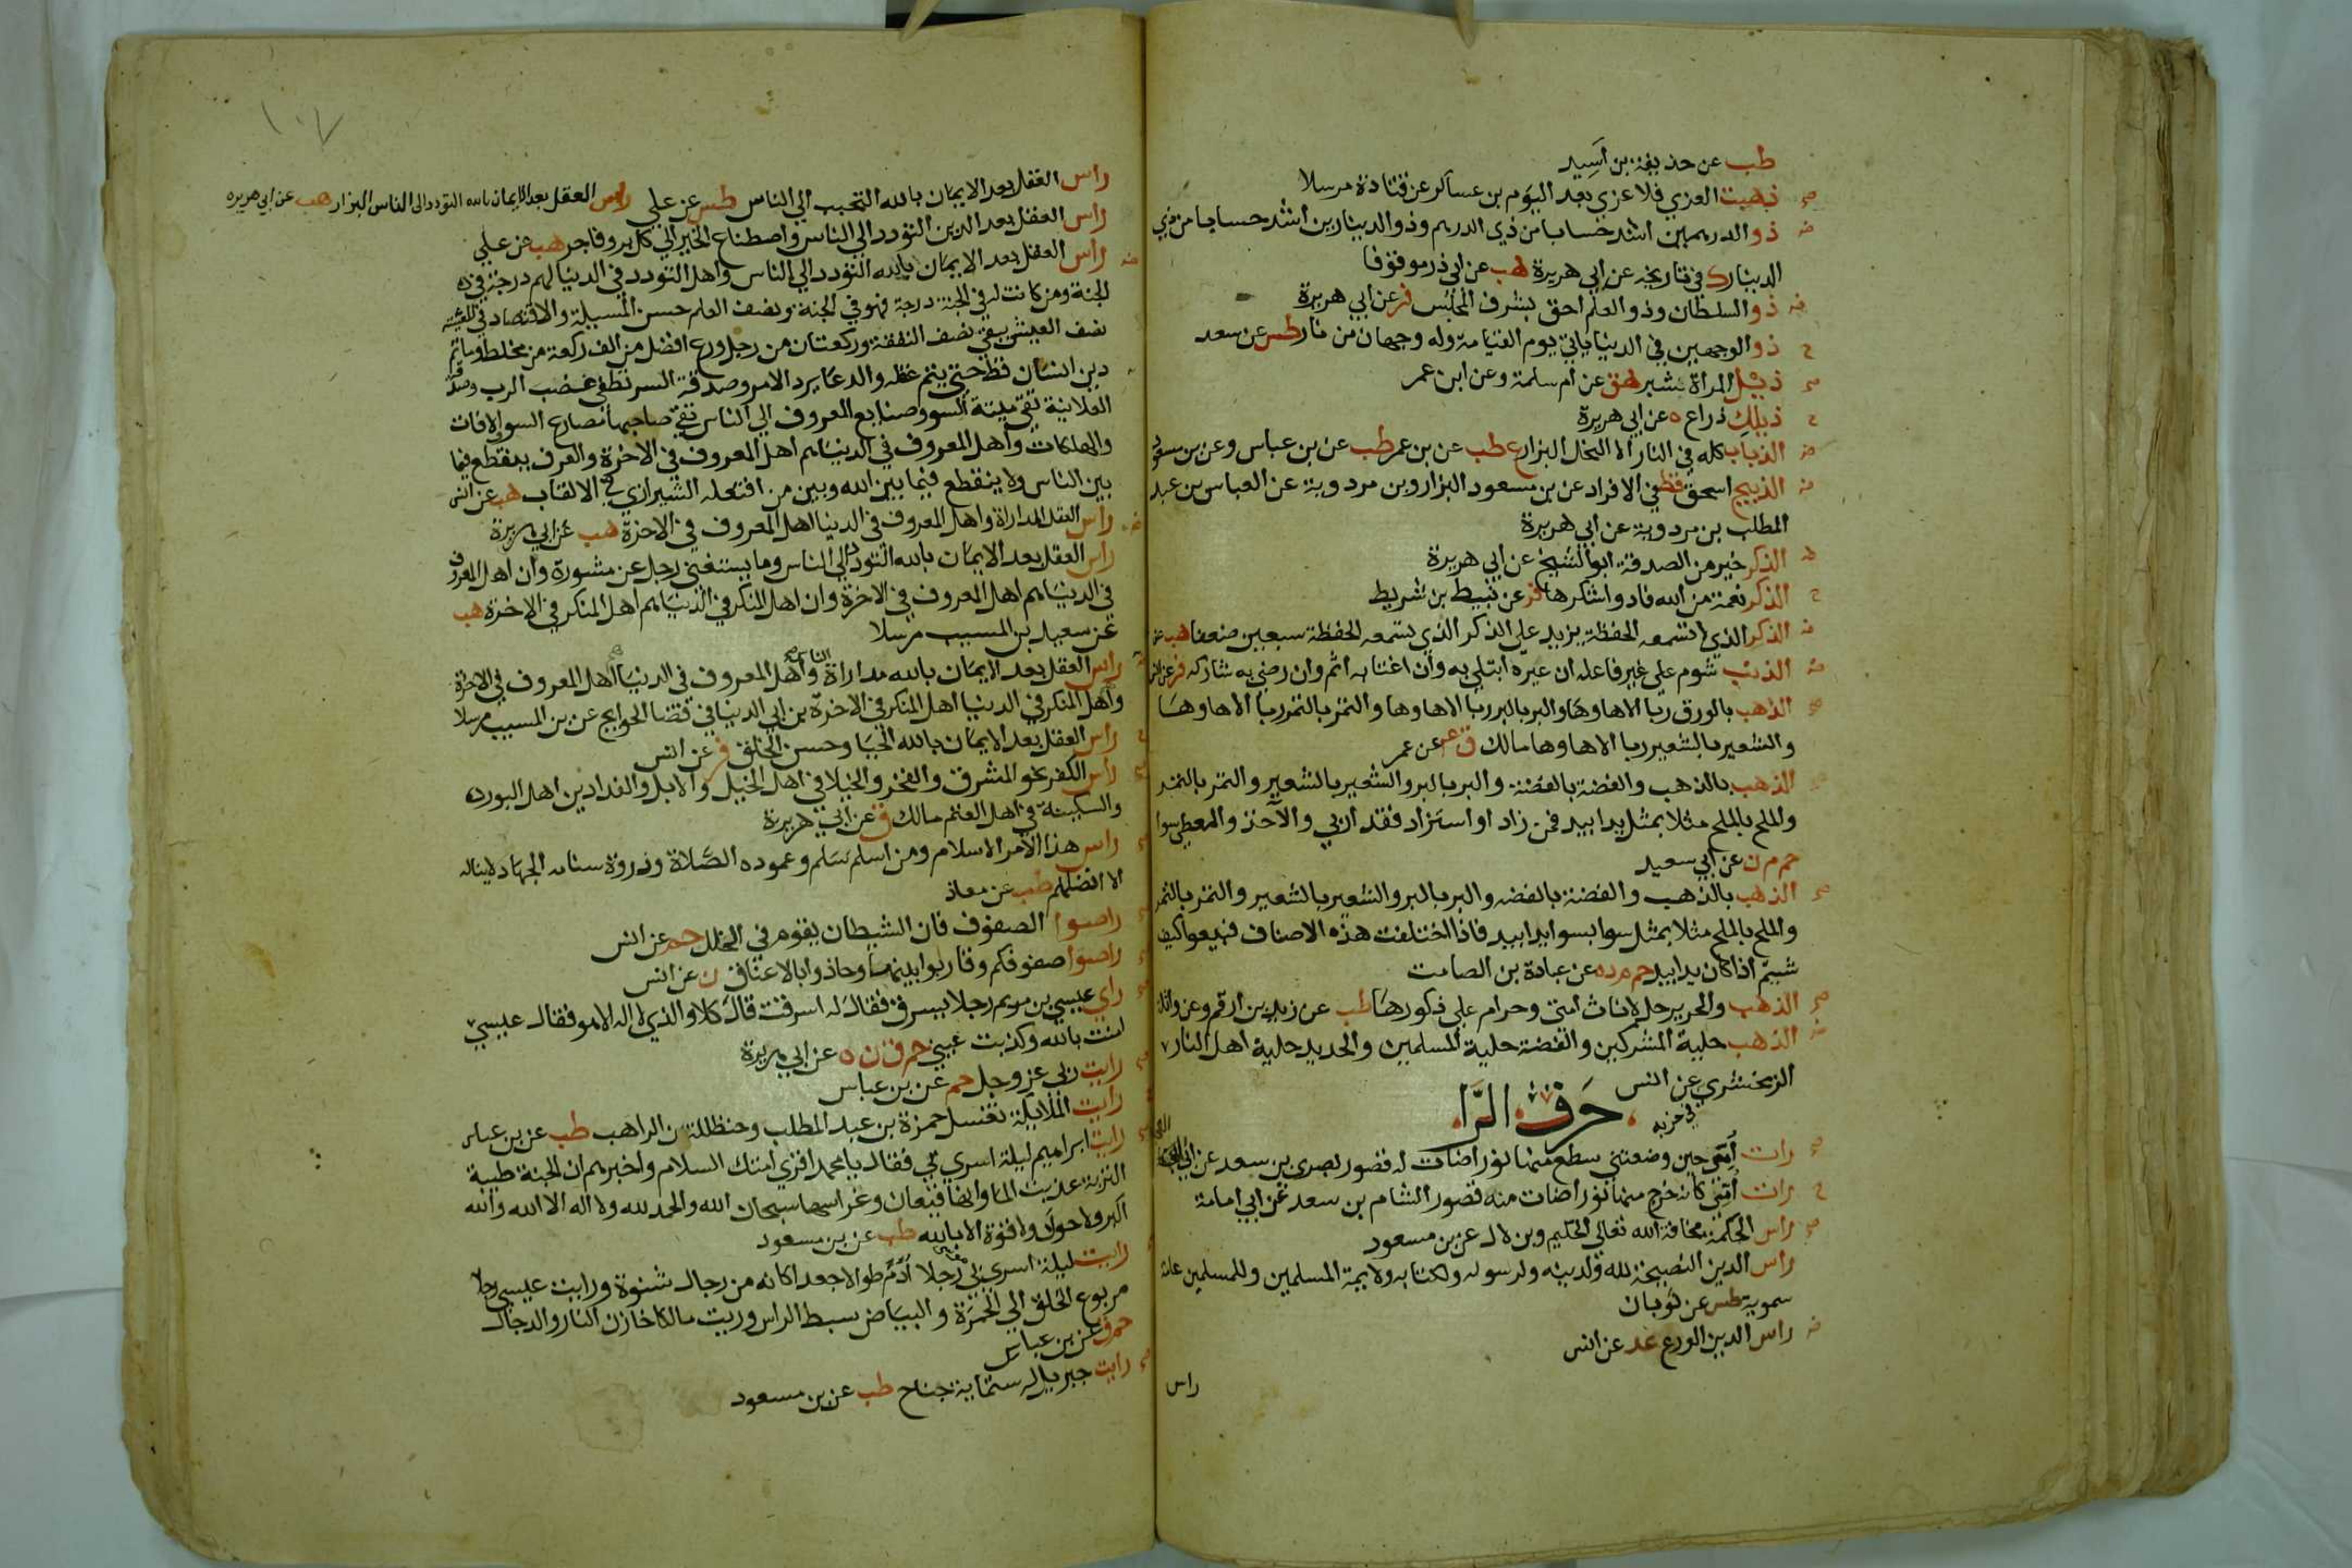 طب عن حذيفة بن أَسِيد
صح ذهبت العزي فلا عزي بعد اليوم بن عساكر عن قتادة مرسلا
ض ذو الدرهمين اشد حسابا من ذي الدرهم وذو الدينارين اشد حسابا من ذي
الدينار ك في تاريخه عن ابي هريرة هب عن ابي ذر موقوفا
ض ذو السلطان وذو العلم احق بشرف المجلس فر عن ابي هريرة
ح ذو الوجهين في الدنيا ياتي يوم القيامة وله وجهان من نار طس عن سعد
صح ذيل المراة شبر هق عن ام سلمة وعن ابن عمر
ح ذيلكِ ذراع ه عن ابي هريرة
ض الذباب كله في النار الا النحل البزار ع طب عن بن عمر طب عن بن عباس وعن بن مسعود
ض الذبيح اسحق قط في الافراد عن بن مسعود البزار وبن مردوية عن العباس بن عبد
المطلب بن مردوية عن ابي هريرة
الذكر خير من الصدقة ابو الشيخ عن ابي هريرة
ح الذكر نعمة من الله فادوا شكرها فر عن نبيط بن شريط
ض الذكر الذي لا تسمعه الحفظة يزيد علي الذكر الذي تسمعه الحفظة سبعين ضعفا هب عن
ض الذنب شوم علي غير فاعله ان عيره ابتلي به وان اغتابه اثم وان رضي به شاركه فر عن انس
صح الذهب بالورق ربا الا ها وهَا والبر بالبر ربا الا ها وها والتمر بالتمر ربا الا ها وهَا
والشعير بالشعير ربا الا ها وها مالك ق ع عن عمر
صح الذهب بالذهب والفضة بالفضة والبر بالبر والشعير بالشعير والتمر بالتمر
والملح بالملح مثلا بمثل يدا بيد فمن زاد او استزاد فقد اربي والآخذ والمعطي سوا
حم م ن عن ابي سعيد
صح الذهب بالذهب والفضة بالفضه والبر بالبر والشعير بالشعير والتمر بالتمر
والملح بالملح مثلا بمثل سوا بسوا يدا بيد فاذا اختلفت هذه الاصناف فبيعوا كيف
شيتم اذا كان يدا بيد حم م د ه عن عبادة بن الصامت
صح الذهب والحرير حل لاناث امتي وحرام علي ذكورها طب عن زيد بن ارقم وعن واثلة
ض الذهب حلية المشركين والفضة حلية المسلمين والحديد حلية اهل النار
الزمخشري عن انس
في جزيه
حَرف الرَّا
صح رات اُمّي حين وضعتني سطع منها نور اضات له قصور بصري بن سعد عن ابي العجفا
ح رات اُمّي كانه خرج منها نور اضات منه قصور الشام بن سعد عن ابي امامة
صح راس الحكمة مخافة الله تعالي الحكيم وبن لال عن بن مسعود
راس الدين النصيحة لله ولدينه ولرسوله ولكتابه ولايمة المسلمين وللمسلمين عامة
سموية طس عن ثوبان
ض راس الدين الورع عد عن انس
راس
١٠٧
راس العقل بعد الايمان بالله التحبب الي الناس طس عن علي راس العقل بعد الايمان بالله التودد الى الناس البزار هب عن ابي هريره
راس العقل بعد الدين التودد الي الناس واصطناع الخير الي كل بر وفاجر هب عن علي
ض راس العقل بعد الايمان بالله التودد الي الناس واهل التودد في الدنيا لهم درجة في
الجنة ومن كانت له في الجنة درجة فهو في الجنة ونصف العلم حسن المسيلة والاقتصاد في المعيشة
نصف العيش يبقي نصف النفقة وركعتان من رجل ورع افضل من الف ركعة من مخلط وماتم
دين انسان قط حتي يتم عقله والدعا يرد الامر وصدقة السر تطفي غضب الرب وصدقة
العلانية تقي ميتة السوو صنايع المعروف الي الناس تقي صاحبها مصارع السوا الافات
والهلكات واهل المعروف في الدنيا هم اهل المعروف في الاخرة والعرف ينقطع فيما
بين الناس ولا ينقطع فيما بين الله وبين من افتعله الشيرازي في الالقاب هب عن انس
ض راس العقل المداراة واهل المعروف في الدنيا اهل المعروف في الاخرة هب عن ابي هريرة
راس العقل بعد الايمان بالله التودد الي الناس وما يستغني رجل عن مشورة وان اهل المعروف
في الدنيا هم اهل المعروف في الاخرة وان اهل المنكر في الدنيا هم اهل المنكر في الاخرة هب
عن سعيد بن المسيب مرسلا
راس العقل بعد الايمان بالله مداراة الناس واهل المعروف في الدنيا اهل المعروف في الاخرة
واهل المنكر في الدنيا اهل المنكر في الاخرة بن ابي الدنيا في قضا الحوايج عن بن المسيب مرسلا
راس العقل بعد الايمان بالله الحيا وحسن الخلق فر عن انس
صح راس الكفر نحو المشرق والفخر والخيلا في اهل الخيل والابل والفدادين اهل الوبر
والسكينة في اهل الغنم مالك ق عن ابي هريرة
راس هذا الامر الاسلام ومن اسلم سَلم وعموده الصَّلاة وذروة سنامه الجهاد لا يناله
الا افضلهم طب عن معاذ
راصوا الصفوف فان الشيطان يقوم في الخلل حم عن انس
راصوا صفوفكم وقاربوا بينها وحاذوا بالاعناق ن عن انس
صح راي عيسي بن مريم رجلا يسرق فقال له اسرقت قال كلا والذي لا اله الا هو فقال عيسي
امنت بالله وكذبت عيني حم ق ن ه عن ابي هريرة
صح رايت ربي عز وجل حم عن بن عباس
رايت الملايكة تغسل حمزة بن عبد المطلب وحنظلة بن الراهب طب عن بن عباس
صح رايت ابراهيم ليلة اسري بي فقال يا محمد اقري امتك السلام واخبرهم ان الجنة طيبة
التربة عذبت الما وانها قيعان وغراسها سبحان الله والحمد لله ولا اله الا الله والله
اكبر ولا حول ولا قوة الا بالله طب عن بن مسعود
رايت ليلة اسري بي رجلا اُدَم طوالا جعدا كانه من رجال شنوة ورايت عيسي رجلا
مربوع الخلق الي الحُمرَة والبياض سبط الراس وريت مالكا خازن النار والدجال
حم ق عن بن عباس
صح رايت جبريل له ستماية جناح طب عن بن مسعود